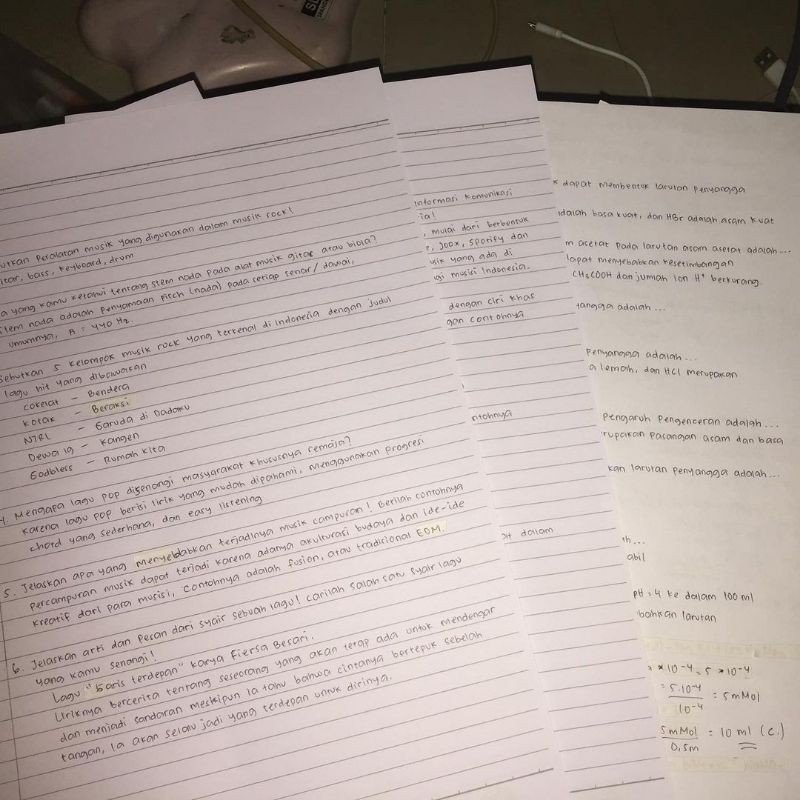 utkan Peralatan musik yang digunakan dalam musik rock!
itar, bass, keyboard, drum
a yang kamu ketahui tentang stem nada pada alat musik gitar atau biola?
Stem nada adalah Penyamaan Pitch (nada) pada setiap senar / dawai,
umumnya, A = 440 Hz.
Sebutkan 5 kelompok musik rock yang terkenal di Indonesia dengan judul
lagu hit yang dibawakan
Cokelat - Bendera
Kotak - Beraksi
NTRL - Garuda di Dadaku
Dewa 19 - Kangen
Godbless - Rumah Kita
4. Mengapa lagu POP disenangi masyarakat khususnya remaja?
Karena lagu POP berisi lirik yang mudah dipahami, menggunakan progresi
chord yang sederhana, dan easy listening
5. Jelaskan apa yang menyebabkan terjadinya musik campuran! Berilah contohnya
Percampuran musik dapat terjadi karena adanya akulturasi budaya dan ide-ide
kreatif dari para musisi, contohnya adalah fusion, atau tradicional EDM.
6. Jelaskan arti dan pesan dari syair sebuah lagu! carilah salah satu syair lagu
yang kamu senangi!
Lagu "Garis terdepan" karya Fiersa Besari.
Liriknya bercerita tentang seseorang yang akan tetap ada untuk mendengar
dan menjadi sandaran meskipun ia tahu bahwa cintanya bertepuk sebelah
tangan, la akan selalu jadi yang terdepan untuk dirinya.
informasi komunikasi
ial
, mulai dari berbentuk
, Joox, Spotify dan
sik yang ada di
gi musisi Indonesia.
dengan ciri khas
gan contohnya
ntohnya
at dalam
k dapat membentuk larutan Penyangga
dalah basa kuat, dan HBr adalah asam kuat
m asetat Pada larutan asam asetat adalah...
dapat menyebabkan kesetimbangan
CH3COOH dan jumlah ion H+ berkurang.
yangga adalah...
Penyangga adalah...
a lemah, dan HCl merupakan
Pengaruh Pengenceran adalah...
rupakan Pasangan asam dan basa
kan larutan Penyangga adalah...
ah...
abil
PH = 4 ke dalam 100 ml
bahkan larutan
x 10-4 = 5 x 10-4
= 5.10-4 / 10-4 = 5 mMol
5 mMol / 0,5m = 10 ml (c.)